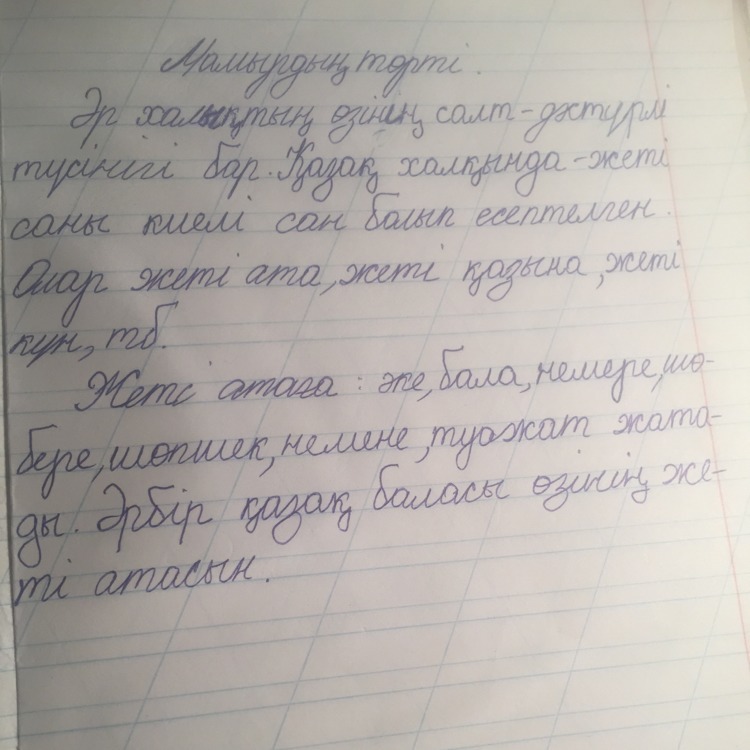 Мамырдың төрті.
Әр халықтың өзінің салт-дәстүрлі
түсінігі бар. Қазақ халқында-жеті
саны киелі сан болып есептелген.
Олар жеті ата, жеті қазына, жеті
күн, тб.
Жеті атаға: әке, бала, немере, шө-
бере, шөпшек, немене, туажат жата-
ды. Әрбір қазақ баласы өзінің же-
ті атасын.